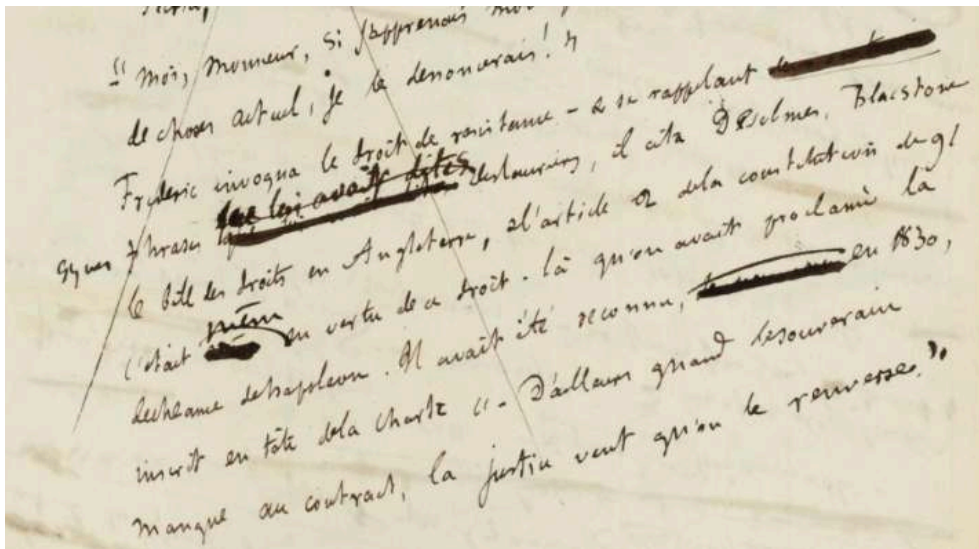 "Moi, Monsieur, si j'apprenais mon
de choses actuel, je le dénoncerais!"
Frederic invoqua le droit de resistance - & se rappelant
qques phrases que lui avait dites Deslauriers, il cita Desolmes, Blacstone
le bill des droits en Angleterre, & l'article 2 de la constitution de 91
C'était même en vertu de ce droit-là qu'on avait proclamé la
decheance de Napoleon. Il avait été reconnu, en 1830,
inscrit en tête de la Charte "- D'ailleurs quand le souverain
manque au contract, la justice veut qu'on le renverse."